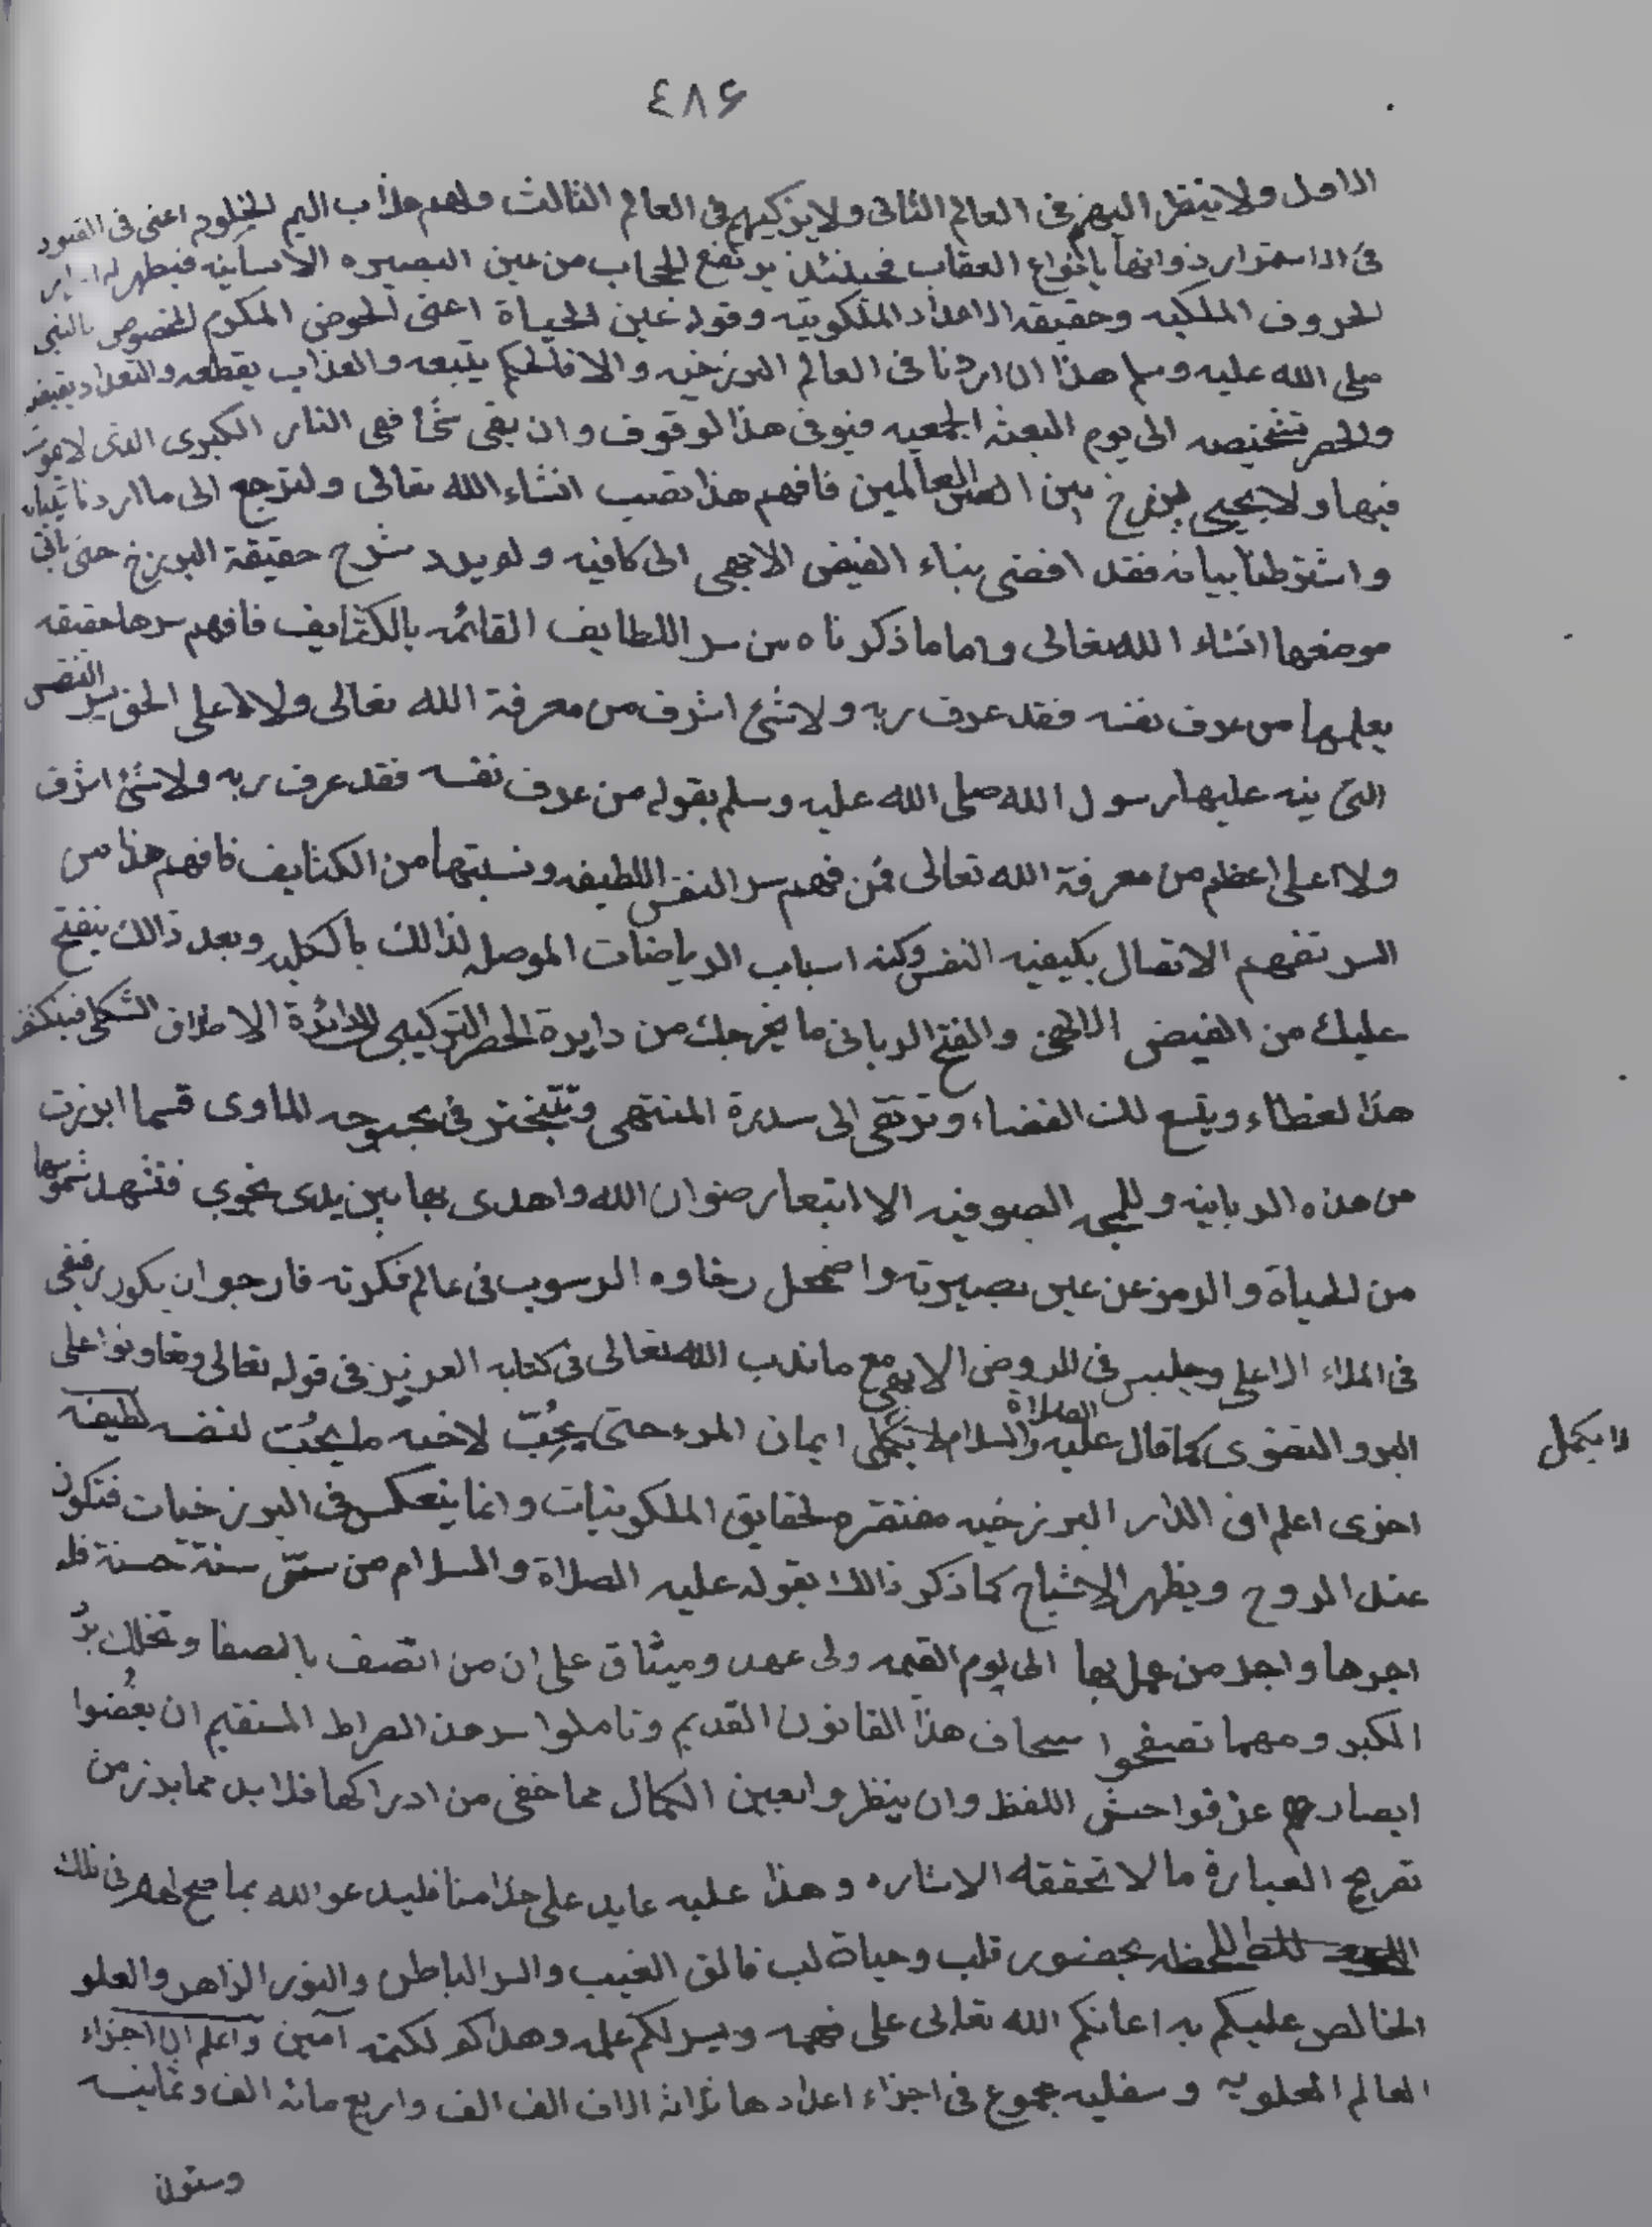 ٤٨٦
الاول ولا ينظر اليهم فى العالم الثانى ولا يزكيهم فى العالم الثالث ولهم عذاب اليم الخلود اعنى فى القبور
فى الاستمرار ذواتها بانواع العقاب فحينئذ يرتفع الحجاب من عين البصيره الانسانيه فيظهر له اسرار
الحروف الملكيه وحقيقه الاعداد الملكوتيه وقوله عين الحياة اعنى الحوض المكرم المخصوص بالنبى
صلى الله عليه وسلم هذا ان اردنا فى العالم البرزخيه والا فالحكم يتبعه والعذاب يقطعه والتعداد يقيضه
والحصر تشخيصه الى يوم البعث الجمعيه فيوفى هذا لوقوف وان بقى شئ فهى النار الكبرى الذى لا يموت
فيها ولا يحيى برزخ بين العالمين فافهم هذا تصب انشاء الله تعالى ولنرجع الى ما اردنا تبيانه
واشترطنا بيانه فقد افضى بناء الفيض الابهى الى كافيه ولم يرد شرح حقيقة البرزخ حتى ياتى
موضعها انشاء الله تعالى واما ما ذكرناه من سر اللطايف القائمه بالكثايف فافهم سرها حقيقه
يعلمها من عرف نفسه فقد عرف ربه ولا شئ اشرف من معرفة الله تعالى ولا اعلى الحق سر النفس
التى نبه عليها رسول الله صلى الله عليه وسلم بقوله من عرف نفسه فقد عرف ربه ولا شئ اشرف
ولا اعلى اعظم من معرفة الله تعالى فمن فهم سر النفس اللطيفه ونسبتها من الكثايف فافهم هذا من
السر تفهم الاتصال بكيفيه النفس وكنه اسباب الرياضات الموصله لذالك بالكليه وبعد ذالك ينفتح
عليك من الفيض الالهى والفتح الربانى ما يخرجك من دايرة الحصر التركيبى للدائرة الاطلاق الشكلى فينكشف
هذا لغطاء ويتسع لك الفضاء وترتقى الى سدرة المنتهى وتتبختر فى بحبوحه المأوى قسما ابرزت
من هذه الربانيه والصوفيه الا ابتغا رضوان الله واهدى بها بين يدى نجوى فتشهد شموسها
من الحياة والرمز عن عين بصيرته واضمحل رخاوه الرسوب فى عالم فكرته فارجو ان يكون رفيقى
فى الملاء الاعلى وجليس فى الروض الابهى مع ما ندب الله تعالى فى كتابه العزيز فى قوله تعالى وتعاونوا على
البر والتقوى كما قال عليه الصلاة والسلام لا يكمل ايمان المرء حتى يحب لاخيه ما يحب لنفسه لطيفه
لا يكمل
اخرى اعلم ان الدار البرزخيه مفتقره لحقايق الملكوتيات وانما ينعكس فى البرزخيات فتكون
عند الروح ويظهر الاشباح كما ذكر ذالك بقوله عليه الصلاة والسلام من سن سنة حسنة فله
اجرها واجر من عمل بها الى يوم القيمه ولى عهد وميثاق على ان من اتصف بالصفا وتخلل برد
الكبر ومهما تصفحوا سجاف هذا القانون القديم وتاملوا سر هذ الصراط المستقيم ان يغضوا
ابصارهم عن فواحش اللفظ وان ينظروا بعين الكمال مما خفى من ادراكها فلا بد مما يبرز من
تصريح العبارة ما لا تحققه الاشاره وهذا عليه عايد على هذا منا فليدعو الله بما صح لهم فى تلك
اللحظه بحضور قلب وحيات لب فالق الغيب والسر الباطن والنور الزاهر والعلو
الخالص عليكم به اعانكم الله تعالى على فهمه ويسر لكم علمه وهداكم لكتمه آمين واعلم ان اجزاء
العالم العلويه وسفليه مجموع فى اجزاء اعدادها ثلاثة الاف الف الف واربع مائه الف وثمانيه
وستون